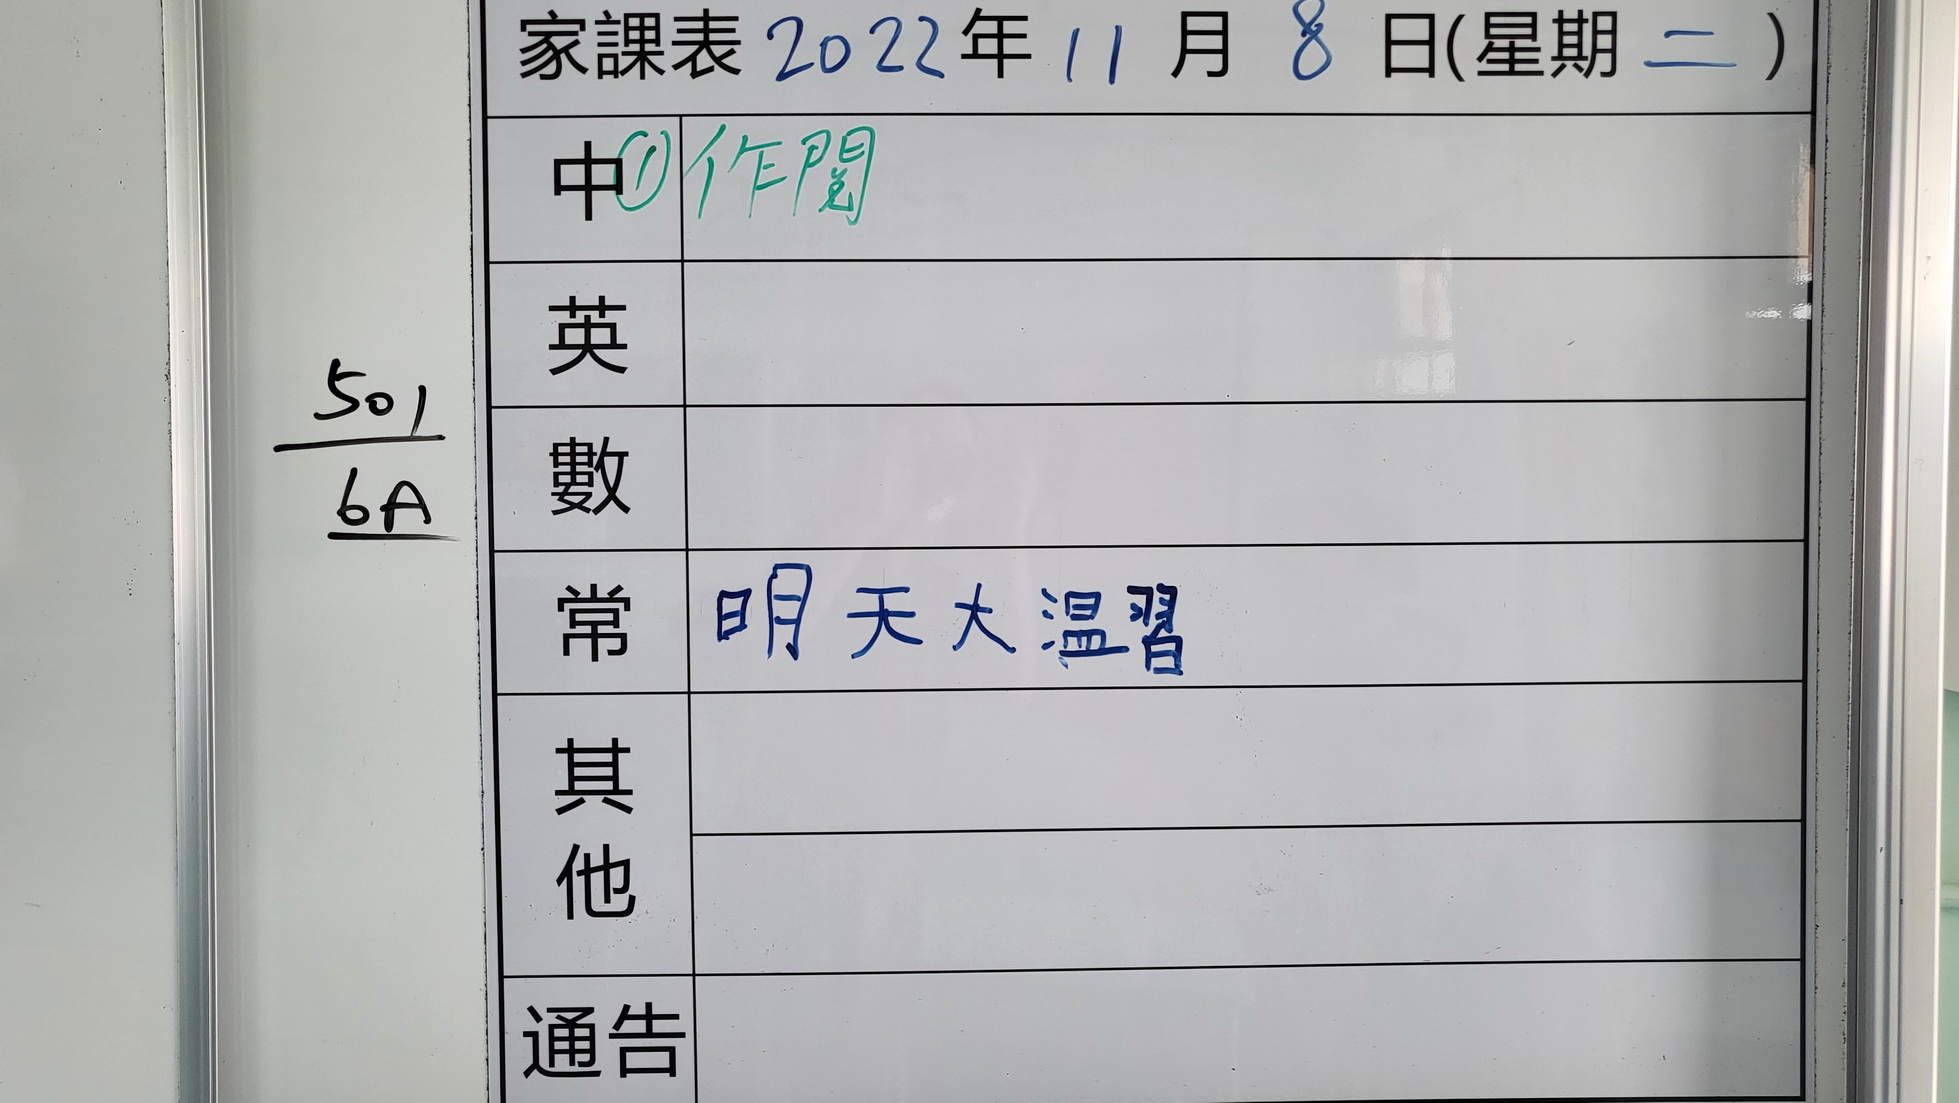 家課表 2022年 11 月 8 日(星期 二 )
中 ① 作閱
英
501
數
6A
常 明天大温習
其他
通告